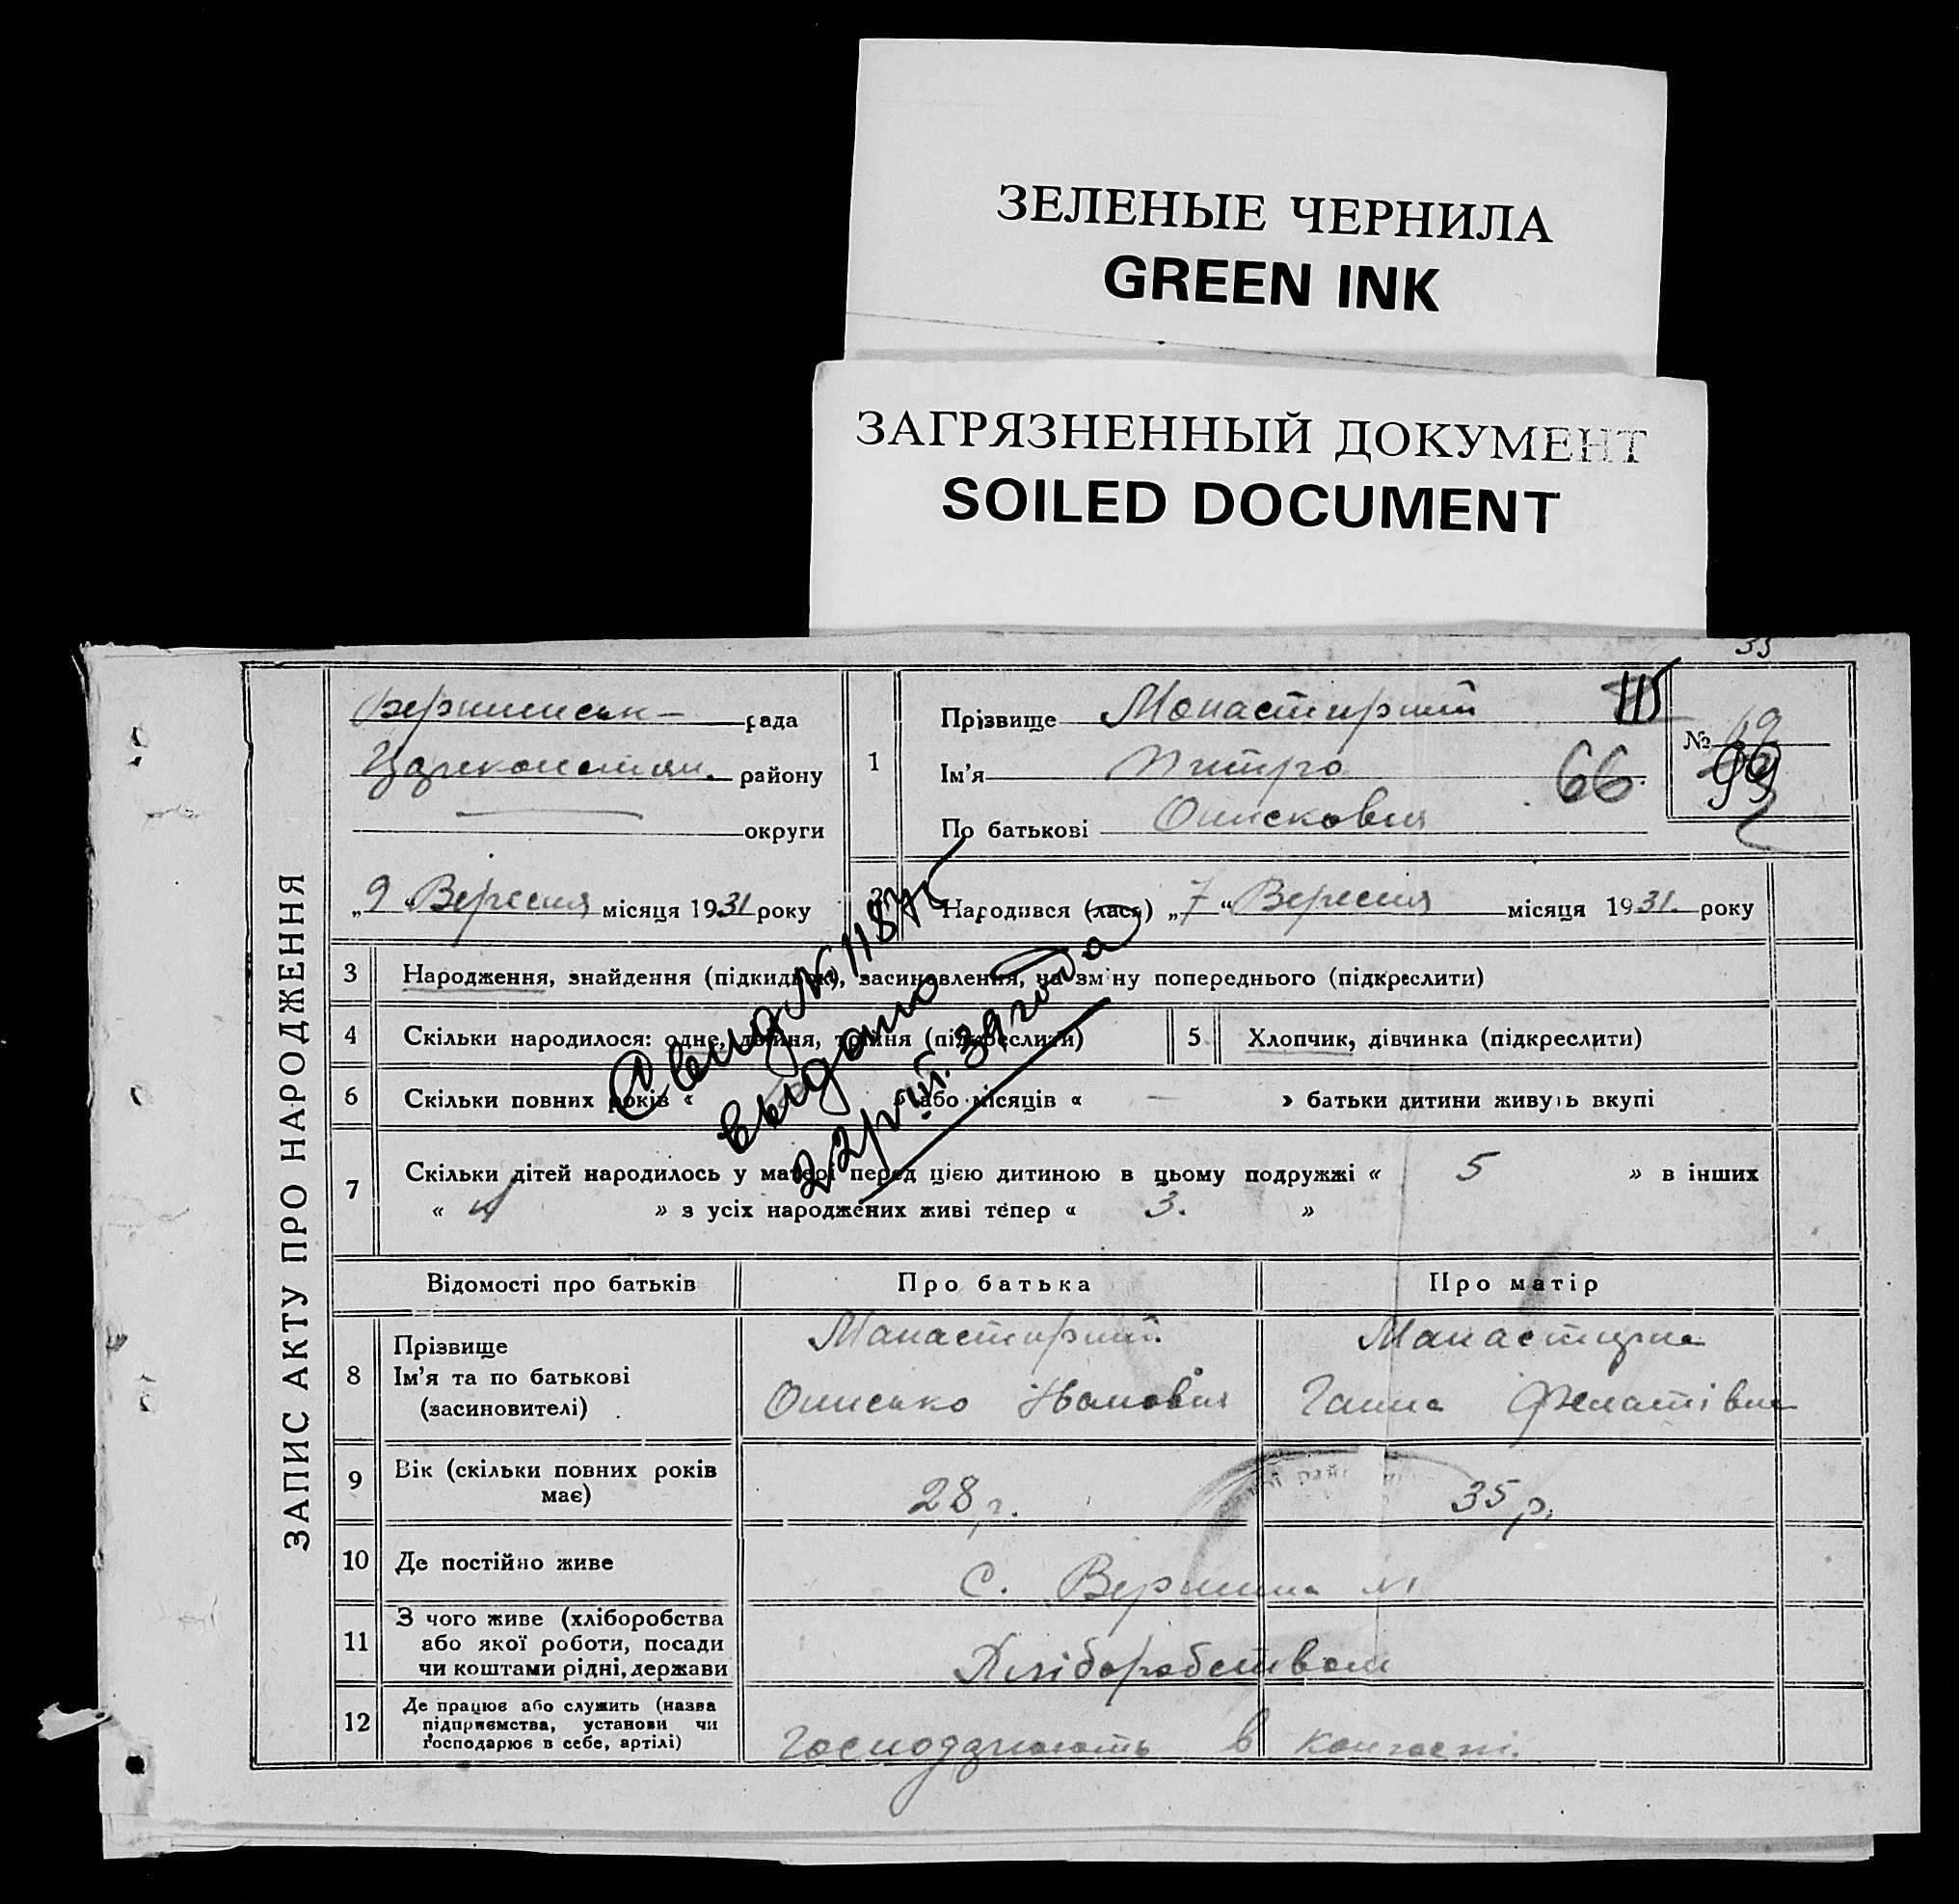 ЗЕЛЕНЫЕ ЧЕРНИЛА
GREEN INK
ЗАГРЯЗНЕННЫЙ ДОКУМЕНТ
SOILED DOCUMENT
ЗАПИС АКТУ ПРО НАРОДЖЕННЯ
рада
району
округи
„9“ Вересня місяця 1931 року
1
Прізвище Монастирний
Ім'я Митро
По батькові Онисковия
115
66.
№ 69
99
Народився (лась) „7“ Вересня місяця 1931. року
Свид. № 11875
выдано
22/VIII. 39 года
3 Народження, знайдення (підкидьок), засиновлення, на зміну попереднього (підкреслити)
4 Скільки народилося: одне, двійня, трійня (підкреслити)
5 Хлопчик, дівчинка (підкреслити)
6 Скільки повних років « » або місяців « — » батьки дитини живуть вкупі
7 Скільки дітей народилось у матері перед цією дитиною в цьому подружжі « 5 » в інших
« » з усіх народжених живі тепер « 3. »
Відомості про батьків Про батька Про матір
8 Прізвище
Ім'я та по батькові
(засиновителі)
Манастирний Манастирна
Онисько Іванович Ганна
9 Вік (скільки повних років має) 28 р. 35 р.
10 Де постійно живе с. Вершина №1
11 З чого живе (хліборобства
або якої роботи, посади
чи коштами рідні, держави
Хліборобством
12 Де працює або служить (назва
підприємства, установи чи
господарює в себе, артілі)
господарюють в